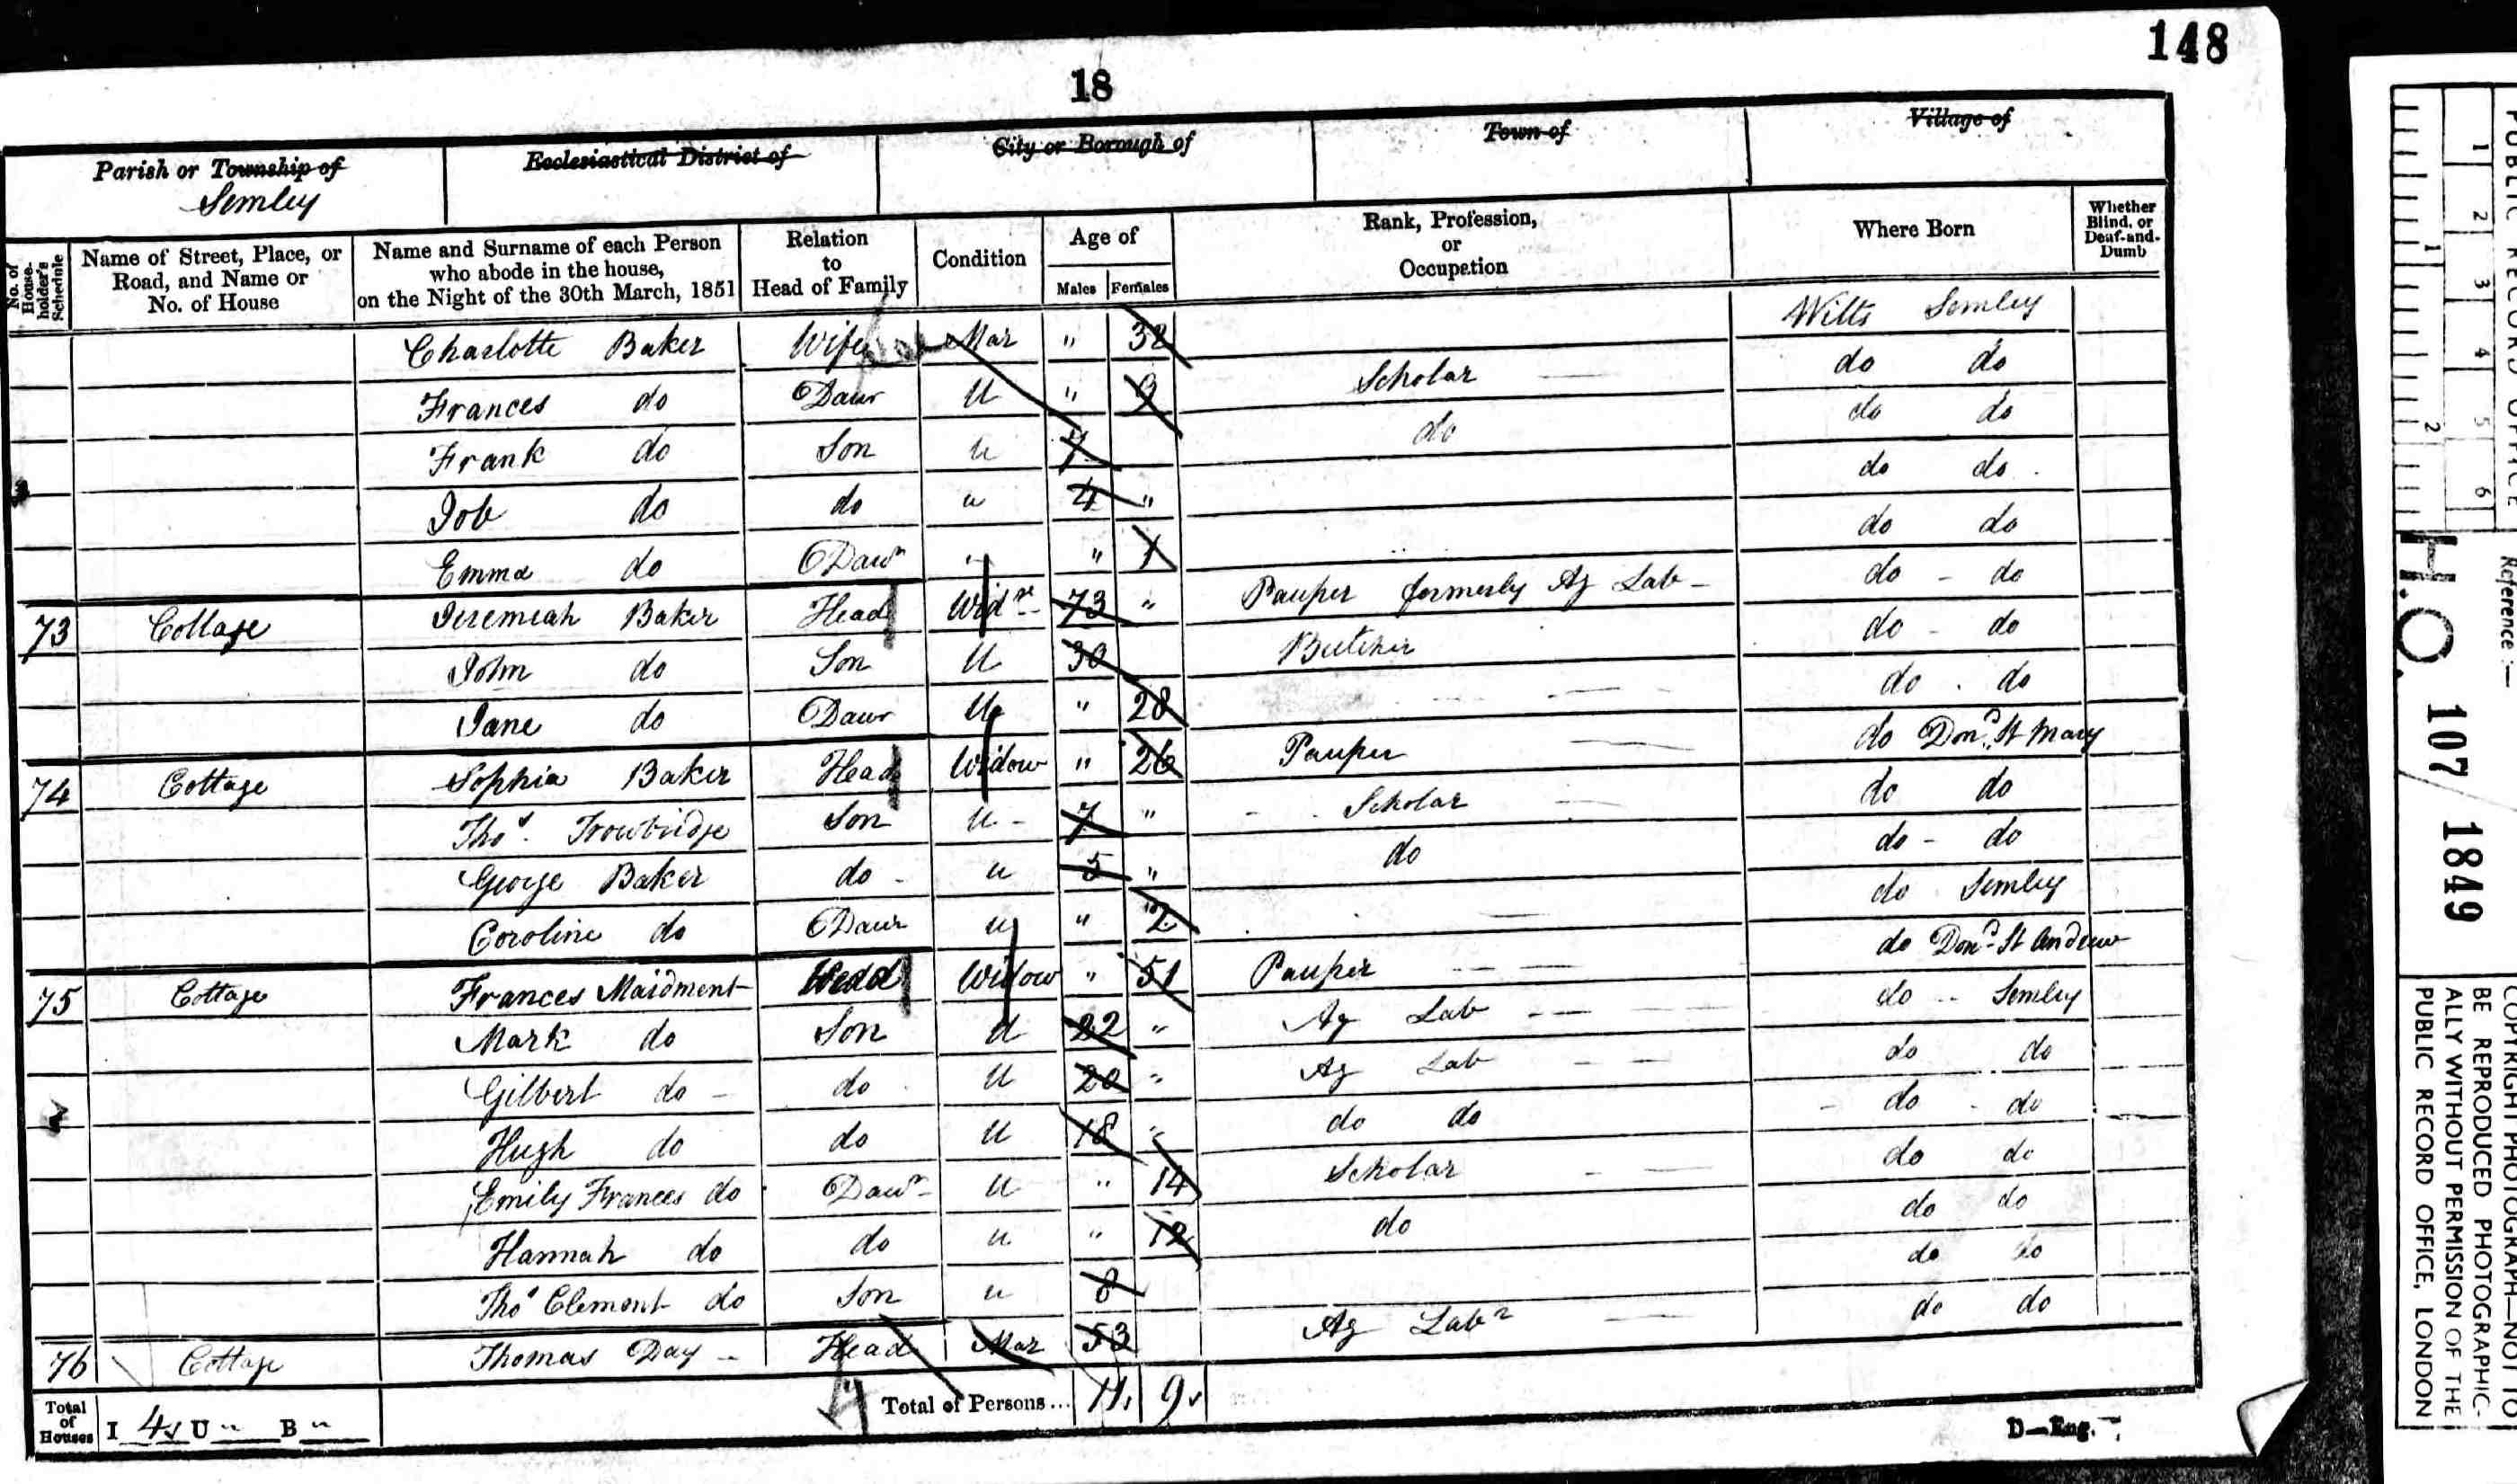 148
18
Parish or Township of
Semley
Ecclesiastical District of
City or Borough of
Town of
Village of
No. of Householder's Schedule
Name of Street, Place, or Road, and Name or No. of House
Name and Surname of each Person who abode in the house, on the Night of the 30th March, 1851
Relation to Head of Family
Condition
Age of
Males
Females
Rank, Profession, or Occupation
Where Born
Whether Blind, or Deaf-and-Dumb
Charlotte Baker Wife Mar " 32 Wilts Semley
Frances do Daur U " 9 Scholar do do
Frank do Son U 7 do do do
Job do do u 4 " do do
Emma do Dawr " 1 do do
73 Cottage Jeremiah Baker Head Widr 73 " Pauper formerly Ag Lab do do
John do Son U 30 Butcher do do
Jane do Daur U " 28 do do
74 Cottage Sophia Baker Head Widow " 26 Pauper do Dond St Mary
Thos. Trowbridge Son U 7 " Scholar do do
George Baker do u 5 " do do do
Coroline do Daur u " 2 do Semley
75 Cottage Frances Maidment Head Widow " 51 Pauper do Dond St Andrew
Mark do Son U 22 " Ag Lab do Semley
Gilbert do do U 20 " Ag Lab do do
Hugh do do U 18 " do do do do
Emily Frances do Dawr U " 14 Scholar do do
Hannah do do u " 12 do do do
Thos Clement do Son u 8 do do
76 Cottage Thomas Day Head Mar 53 Ag Labr do do
Total of Houses I 4 U " B "
Total of Persons... 11 9
D—Eng.
PUBLIC RECORD OFFICE
1 2 3 4 5 6
1 2
Reference:—
H.O. 107/1849
COPYRIGHT PHOTOGRAPH—NOT TO
BE REPRODUCED PHOTOGRAPHIC-
ALLY WITHOUT PERMISSION OF THE
PUBLIC RECORD OFFICE, LONDON